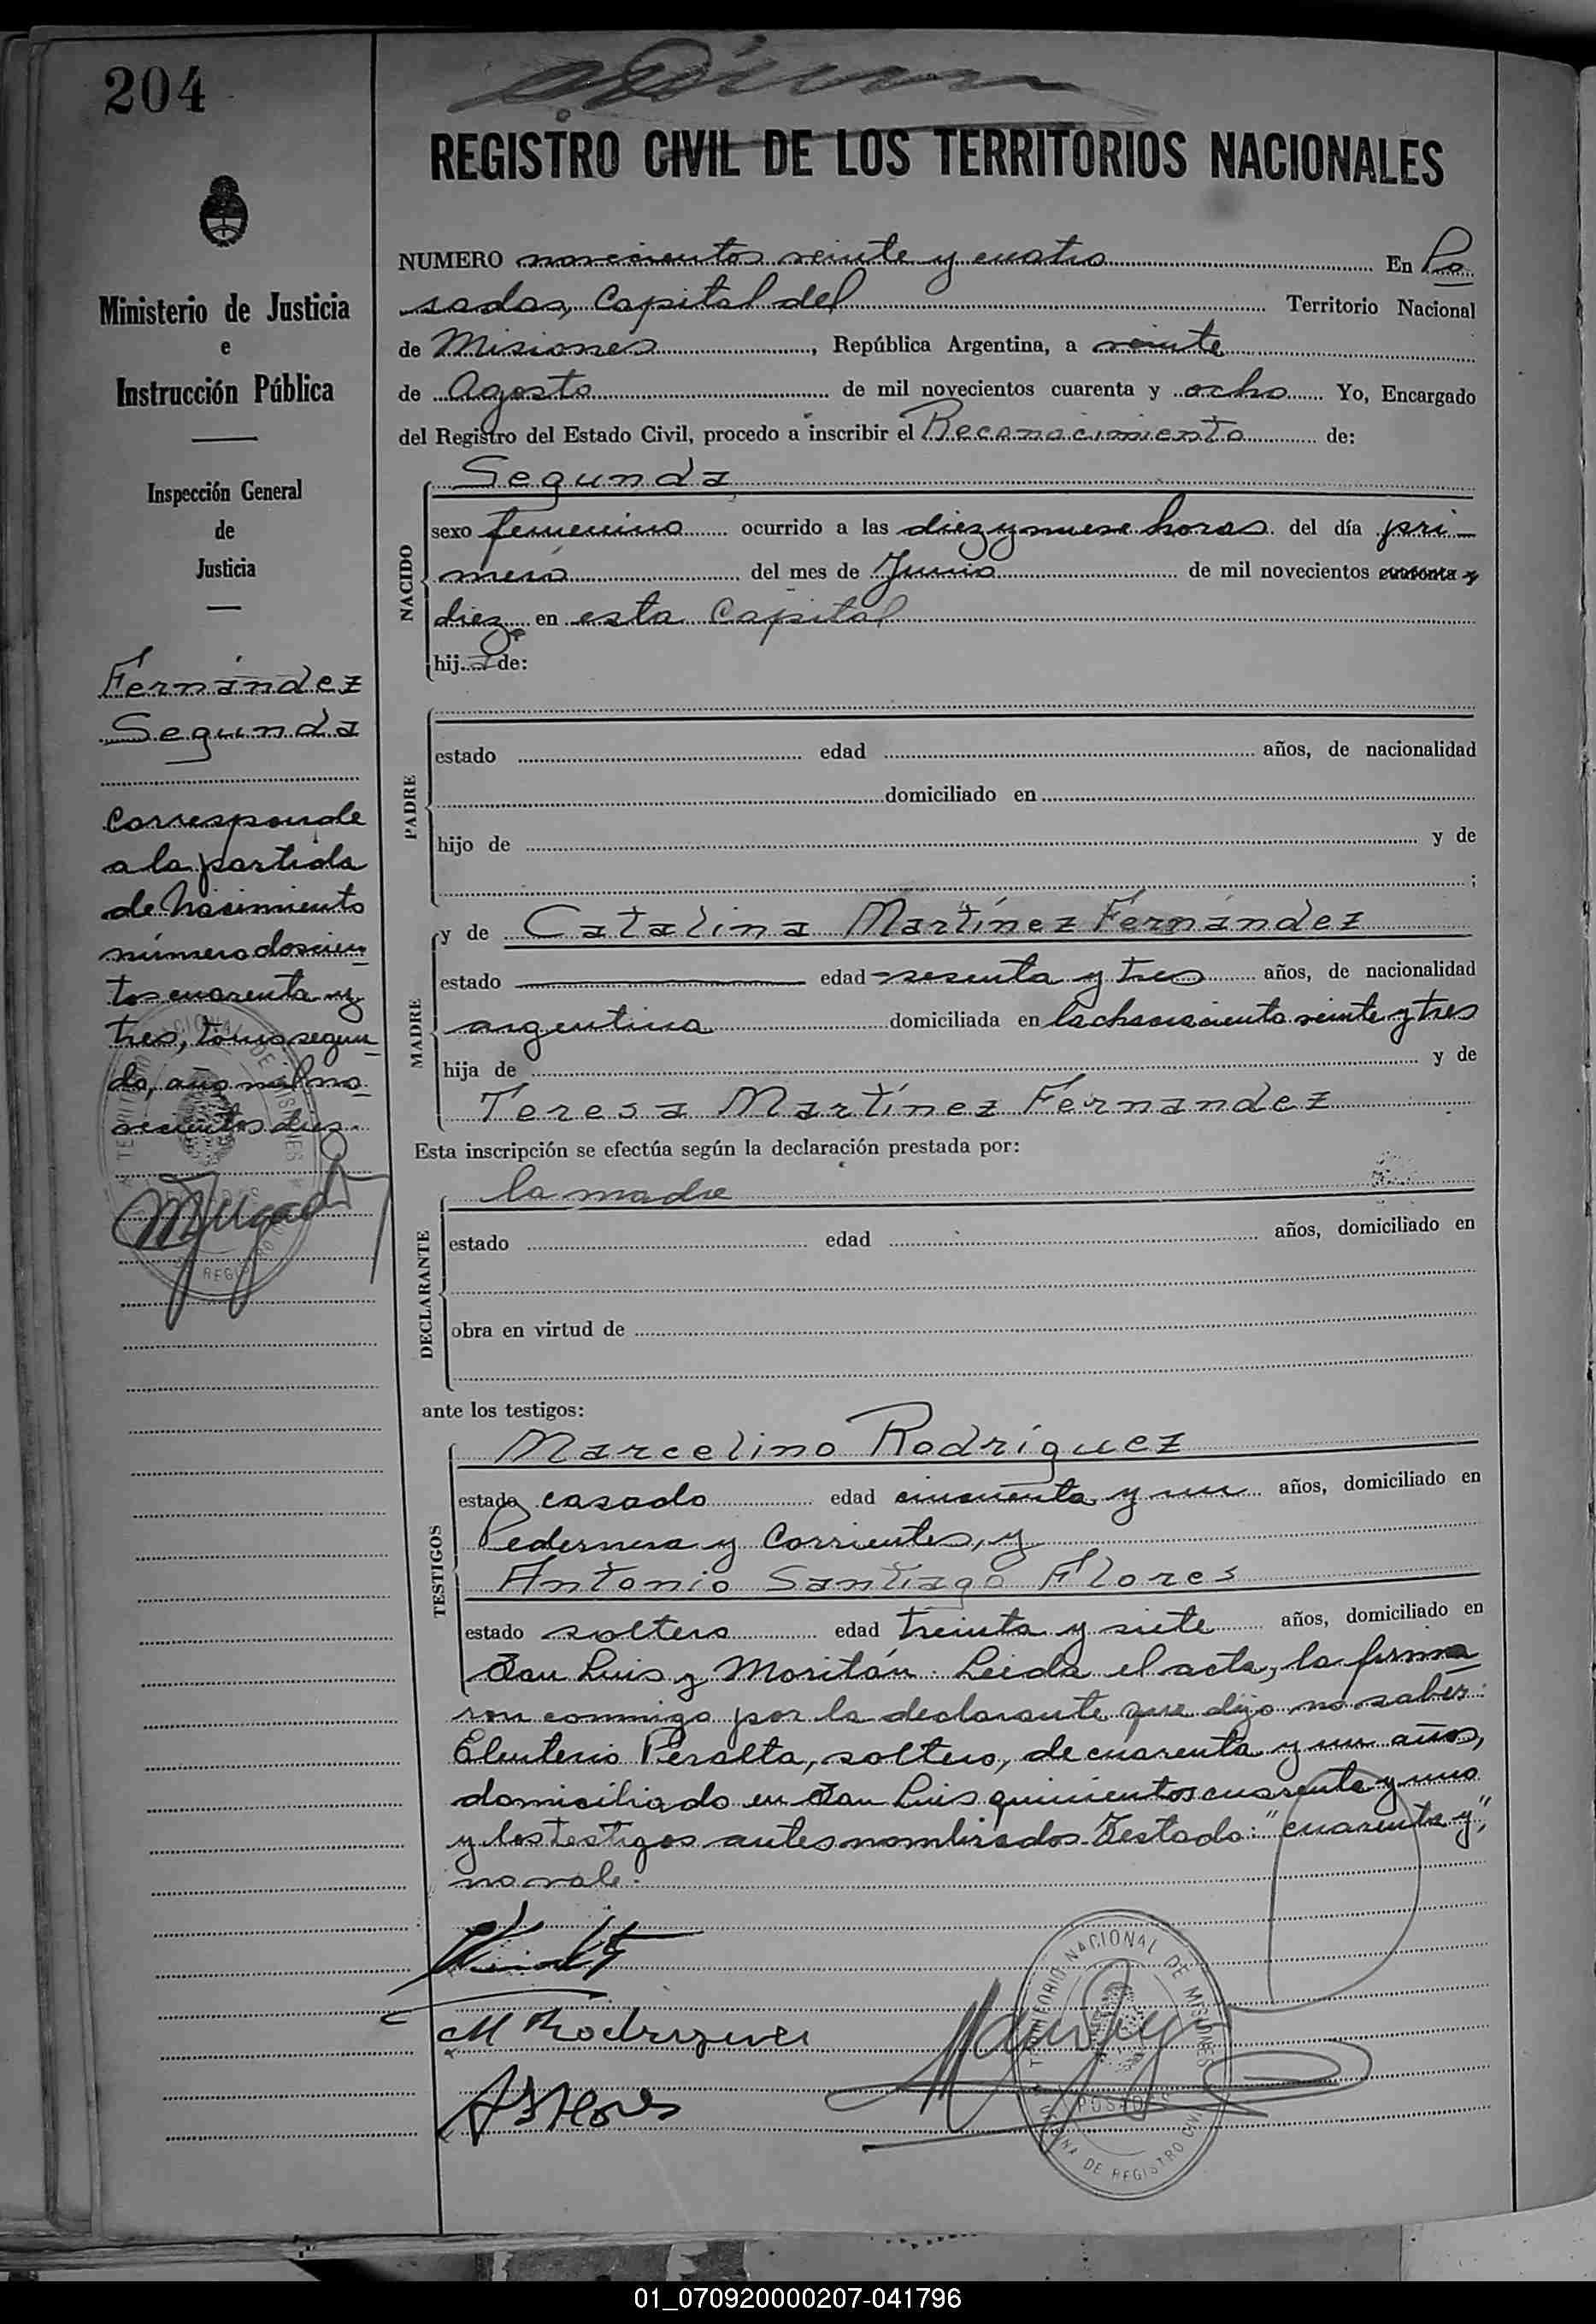 204
REGISTRO CIVIL DE LOS TERRITORIOS NACIONALES
Ministerio de Justicia
e
Instrucción Pública
Inspección General
de
Justicia
Fernández
Segunda
corresponde
a la partida
de nacimiento
número doscien
tos cuarenta y
tres, tomo segun
do, año mil no
vecientos diez.
NUMERO novecientos veinte y cuatro En Po
sadas, Capital del Territorio Nacional
de Misiones, República Argentina, a veinte
de Agosto de mil novecientos cuarenta y ocho Yo, Encargado
del Registro del Estado Civil, procedo a inscribir el Reconocimiento de:
NACIDO
Segunda
sexo femenino ocurrido a las diez y nueve horas del día pri
mero del mes de Junio de mil novecientos cuarenta y
diez en esta Capital
hija de:
PADRE
estado edad años, de nacionalidad
domiciliado en
hijo de y de
;
MADRE
y de Catalina Martínez Fernández
estado edad sesenta y tres años, de nacionalidad
argentina domiciliada en la chacra ciento veinte y tres
hija de y de
Teresa Martínez Fernandez
Esta inscripción se efectúa según la declaración prestada por:
DECLARANTE
la madre
estado edad años, domiciliado en
obra en virtud de
ante los testigos:
TESTIGOS
Marcelino Rodríguez
estado casado edad cincuenta y un años, domiciliado en
Pedernera y Corrientes, y
Antonio Santiago Flores
estado soltero edad treinta y siete años, domiciliado en
San Luis y Moritán. Leida el acta, la firma
ron conmigo por la declarante que dijo no saber:
Eleuterio Peralta, soltero, de cuarenta y un años,
domiciliado en San Luis quinientos cuarenta y uno
y los testigos antes nombrados. Testado: "cuarenta y",
no vale.
M Rodriguez
A S Flores
TERRITORIO NACIONAL DE MISIONES
POSADAS
OFICINA DE REGISTRO CIVIL
01_070920000207-041796